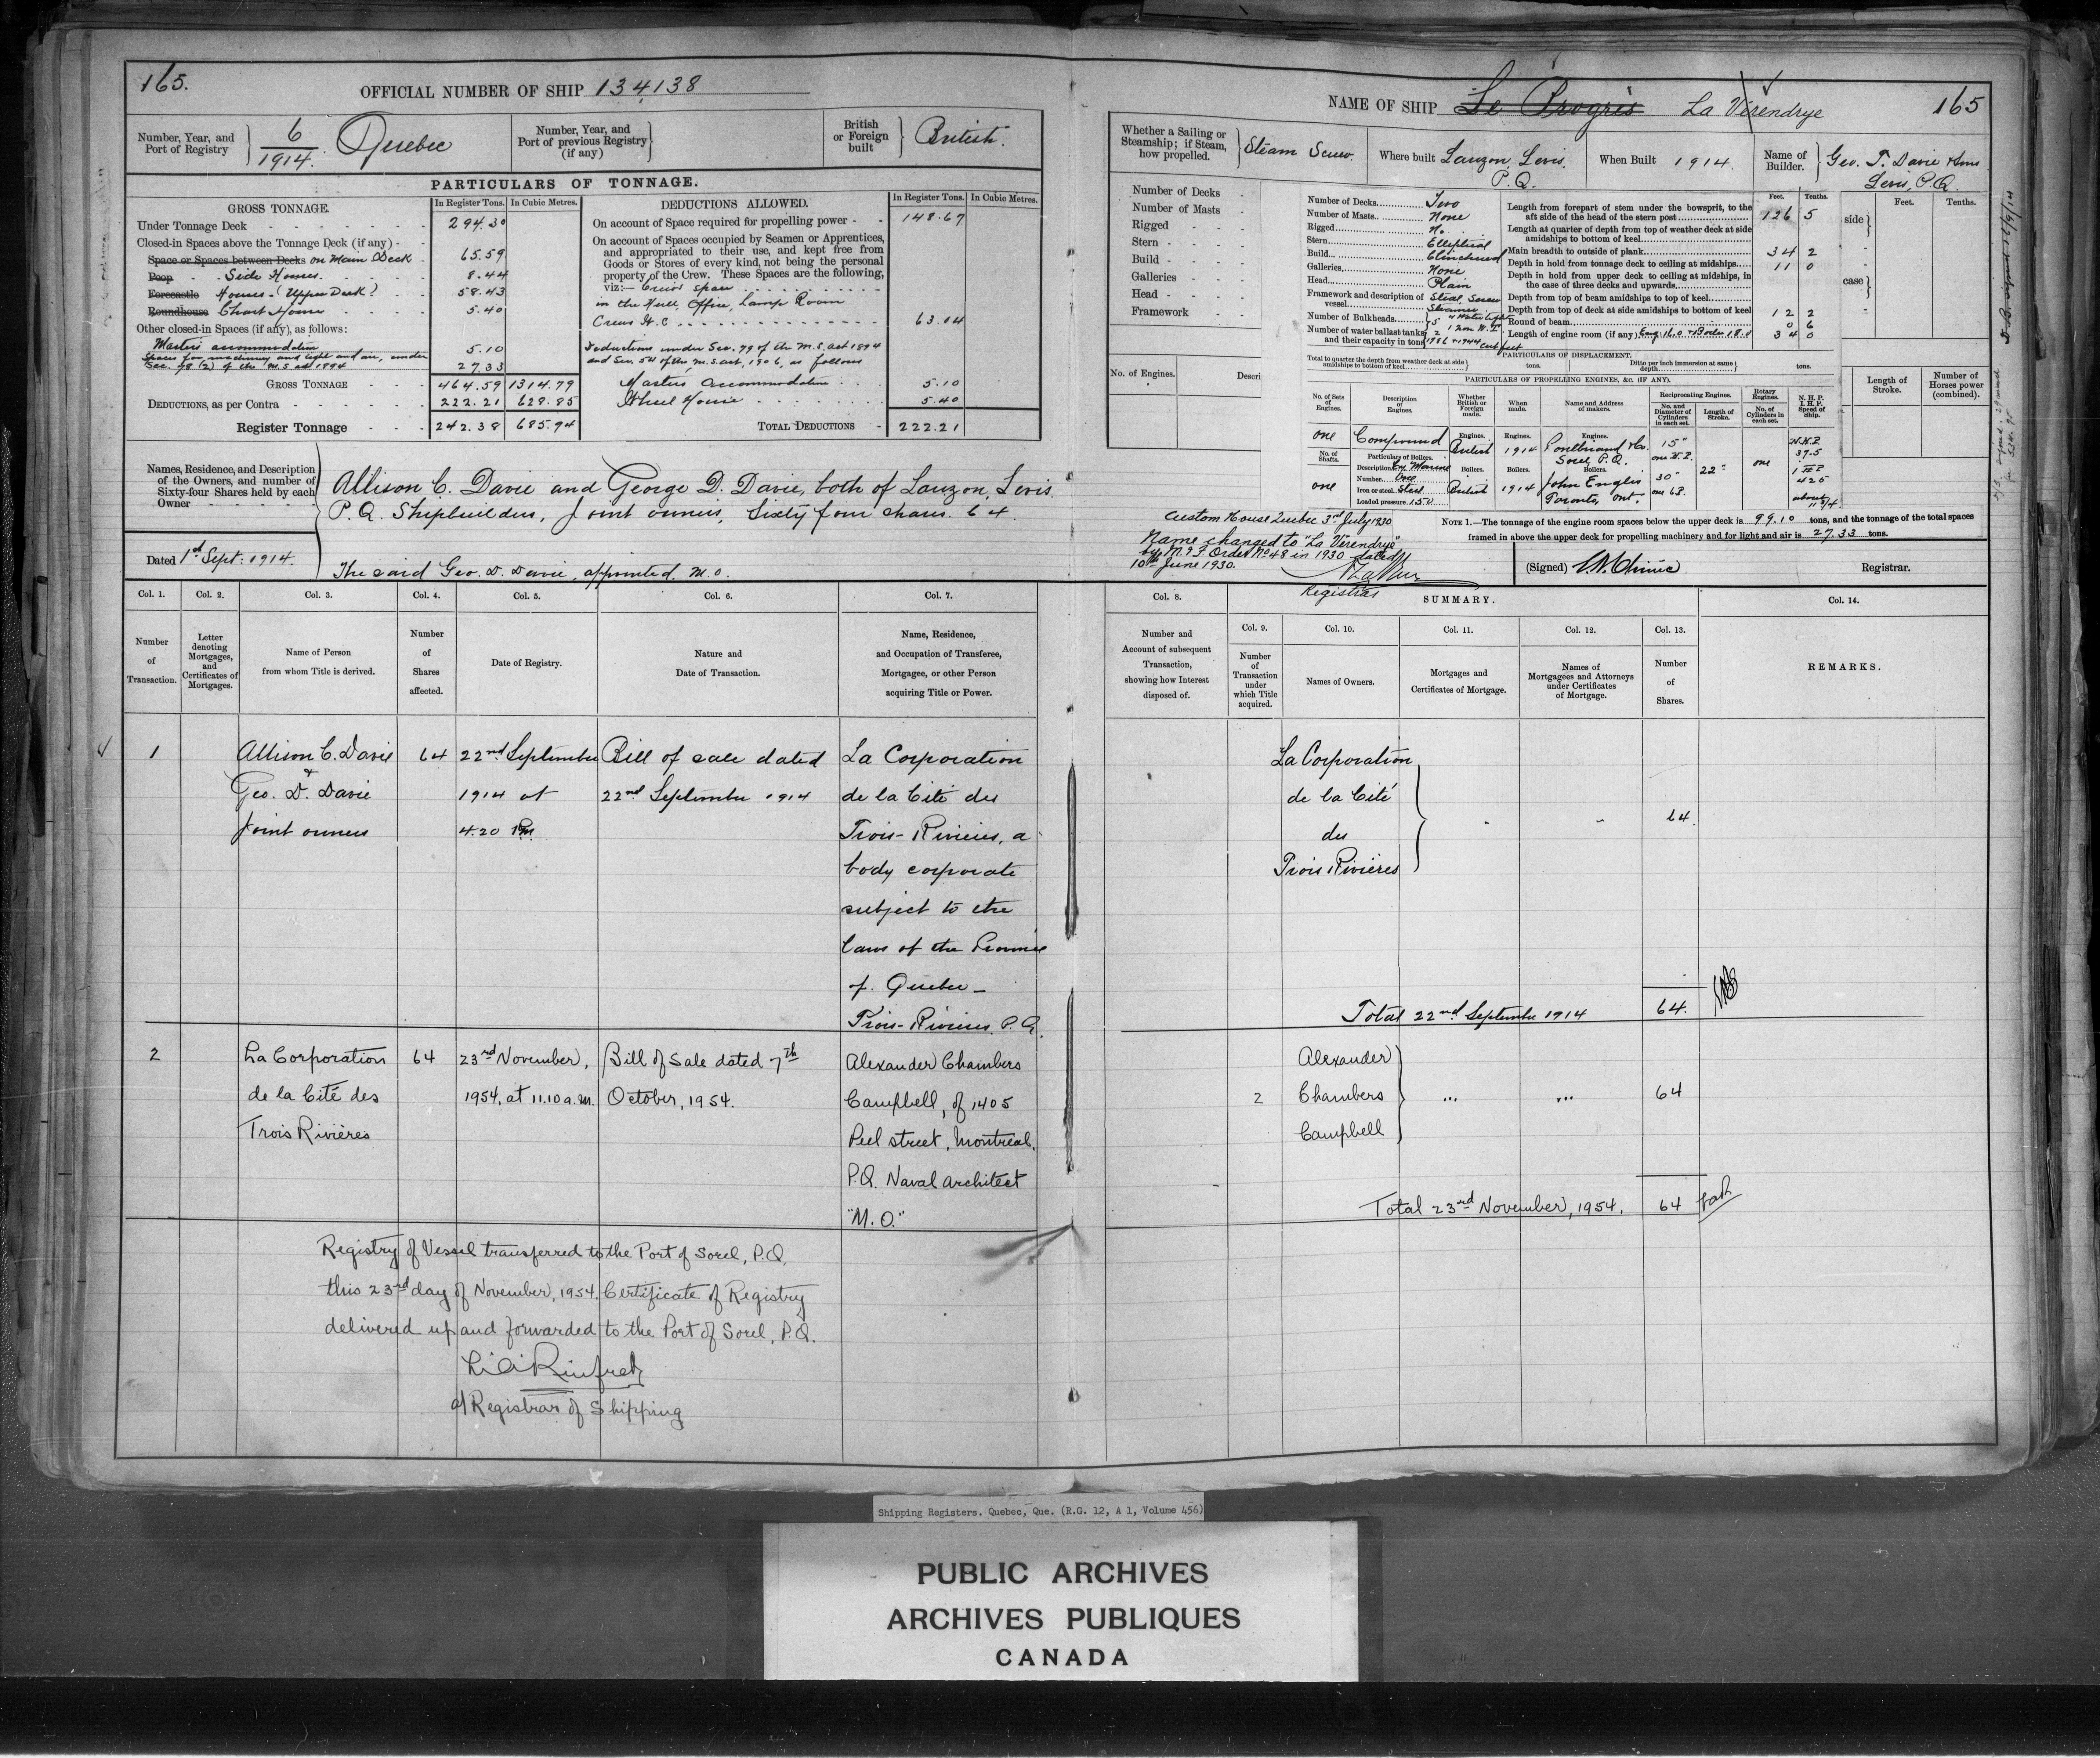 165.
OFFICIAL NUMBER OF SHIP 134,138
Number, Year, and Port of Registry 6/1914. Quebec
Number, Year, and Port of previous Registry (if any)
British or Foreign built British.
PARTICULARS OF TONNAGE.
GROSS TONNAGE. In Register Tons. In Cubic Metres.
Under Tonnage Deck 294.30
Closed-in Spaces above the Tonnage Deck (if any)
Space or Spaces between Decks on Main Deck 65.59
Poop Side Houses. 8.44
Forecastle Houses (Upper Deck) 58.43
Roundhouse Chart House 5.40
Other closed-in Spaces (if any), as follows:
Masters accommodation 5.10
Spaces for machinery and light and air, under
Sec. 78 (2) of the M.S. act 1894 27.33
GROSS TONNAGE 464.59 1314.79
DEDUCTIONS, as per Contra 222.21 628.85
Register Tonnage 242.38 685.94
DEDUCTIONS ALLOWED. In Register Tons. In Cubic Metres.
On account of Space required for propelling power 148.67
On account of Spaces occupied by Seamen or Apprentices,
and appropriated to their use, and kept free from
Goods or Stores of every kind, not being the personal
property of the Crew. These Spaces are the following,
viz:— Crews space
in the Hull, Office, Lamp Room
Crews W.C. 63.04
Deductions under Sec. 79 of the M.S. act 1894
and Sec. 54 of the M.S. act, 1906, as follows
Masters accommodation 5.10
Wheel House 5.40
TOTAL DEDUCTIONS 222.21
Names, Residence, and Description
of the Owners, and number of
Sixty-four Shares held by each
Owner
Allison C. Davie and George D. Davie, both of Lauzon, Levis
P.Q. Shipbuilders, Joint owners, Sixty four shares. 64.
Dated 1st Sept: 1914.
The said Geo. D. Davie, appointed M.O.
NAME OF SHIP Le Progrès La Vérendrye 165
Whether a Sailing or Steamship; if Steam, how propelled. Steam Screw.
Where built Lauzon, Levis. P.Q.
When Built 1914.
Name of Builder. Geo. T. Davie & Sons Levis, P.Q.
Number of Decks
Number of Masts
Rigged
Stern
Build
Galleries
Head
Framework
No. of Engines. Descri
Number of Decks Two
Number of Masts None
Rigged No.
Stern Elliptical
Build Clinchered
Galleries None
Head Plain
Framework and description of vessel Steel, Screw Steamer
Number of Bulkheads 5 4 Watertight 1 Non W.T.
Number of water ballast tanks and their capacity in tons 2
Feet. Tenths.
Length from forepart of stem under the bowsprit, to the
aft side of the head of the stern post 126 5
Length at quarter of depth from top of weather deck at side
amidships to bottom of keel
Main breadth to outside of plank 34 2
Depth in hold from tonnage deck to ceiling at midships 11 0
Depth in hold from upper deck to ceiling at midships, in
the case of three decks and upwards
Depth from top of beam amidships to top of keel
Depth from top of deck at side amidships to bottom of keel 12 2
Round of beam 0 6
Length of engine room (if any) Eng. 16.0 + Boiler 18.0 34 0
side
case
Feet. Tenths.
PARTICULARS OF DISPLACEMENT.
Total to quarter the depth from weather deck at side amidships to bottom of keel tons.
Ditto per inch immersion at same depth tons.
PARTICULARS OF PROPELLING ENGINES, &c. (IF ANY).
No. of Sets of Engines.
Description of Engines.
Whether British or Foreign made.
When made.
Name and Address of makers.
Reciprocating Engines.
No. and Diameter of Cylinders in each set.
Length of Stroke.
Rotary Engines.
No. of Cylinders in each set.
N.H.P. I.H.P. Speed of Ship.
Length of Stroke.
Number of Horses power (combined).
one Compound Engines. British Engines. 1914 Engines. Pontbriand & Co. Sorel, P.Q. 15" one H.P. 22" one N.H.P. 37.5
No. of Shafts. one
Particulars of Boilers.
Number One
Iron or steel Steel
Loaded pressure 150
Boilers. British Boilers. 1914 Boilers. John Inglis Toronto, Ont. 30" I.H.P. 425
Custom House Quebec 3rd July 1930
Name changed to "La Vérendrye"
by M. & F. Order No 48 in 1930 dated
10th June 1930.
Registrar
NOTE 1.—The tonnage of the engine room spaces below the upper deck is 99.10 tons, and the tonnage of the total spaces
framed in above the upper deck for propelling machinery and for light and air is 27.33 tons.
(Signed) Registrar.
Col. 1. Col. 2. Col. 3. Col. 4. Col. 5. Col. 6. Col. 7.
Number of Transaction.
Letter denoting Mortgages, and Certificates of Mortgages.
Name of Person from whom Title is derived.
Number of Shares affected.
Date of Registry.
Nature and Date of Transaction.
Name, Residence, and Occupation of Transferee, Mortgagee, or other Person acquiring Title or Power.
Col. 8. SUMMARY. Col. 14.
Col. 9. Col. 10. Col. 11. Col. 12. Col. 13.
Number and Account of subsequent Transaction, showing how Interest disposed of.
Number of Transaction under which Title acquired.
Names of Owners.
Mortgages and Certificates of Mortgage.
Names of Mortgagees and Attorneys under Certificates of Mortgage.
Number of Shares.
REMARKS.
1 Allison C. Davie 64 22nd September Bill of sale dated La Corporation
& Geo. D. Davie 1914 at 22nd September 1914 de la Cité des
Joint owners 4.20 PM Trois-Rivières, a
body corporate
subject to the
laws of the Province
of Quebec —
Trois-Rivières. P.Q.
La Corporation
de la Cité
des 64.
Trois Rivières
Total 22nd September 1914 64.
2 La Corporation 64 23rd November, Bill of Sale dated 7th Alexander Chambers
de la Cité des 1954, at 11.10 a.m. October, 1954. Campbell, of 1405
Trois Rivières Peel street, Montreal,
P.Q. Naval architect
"M.O."
Alexander
2 Chambers ... ... 64
Campbell
Total 23rd November, 1954. 64
Registry of Vessel transferred to the Port of Sorel, P.Q.
this 23rd day of November, 1954. Certificate of Registry
delivered up and forwarded to the Port of Sorel, P.Q.
Rinfret
a/ Registrar of Shipping
Shipping Registers. Quebec, Que. (R.G. 12, A 1, Volume 456)
PUBLIC ARCHIVES
ARCHIVES PUBLIQUES
CANADA